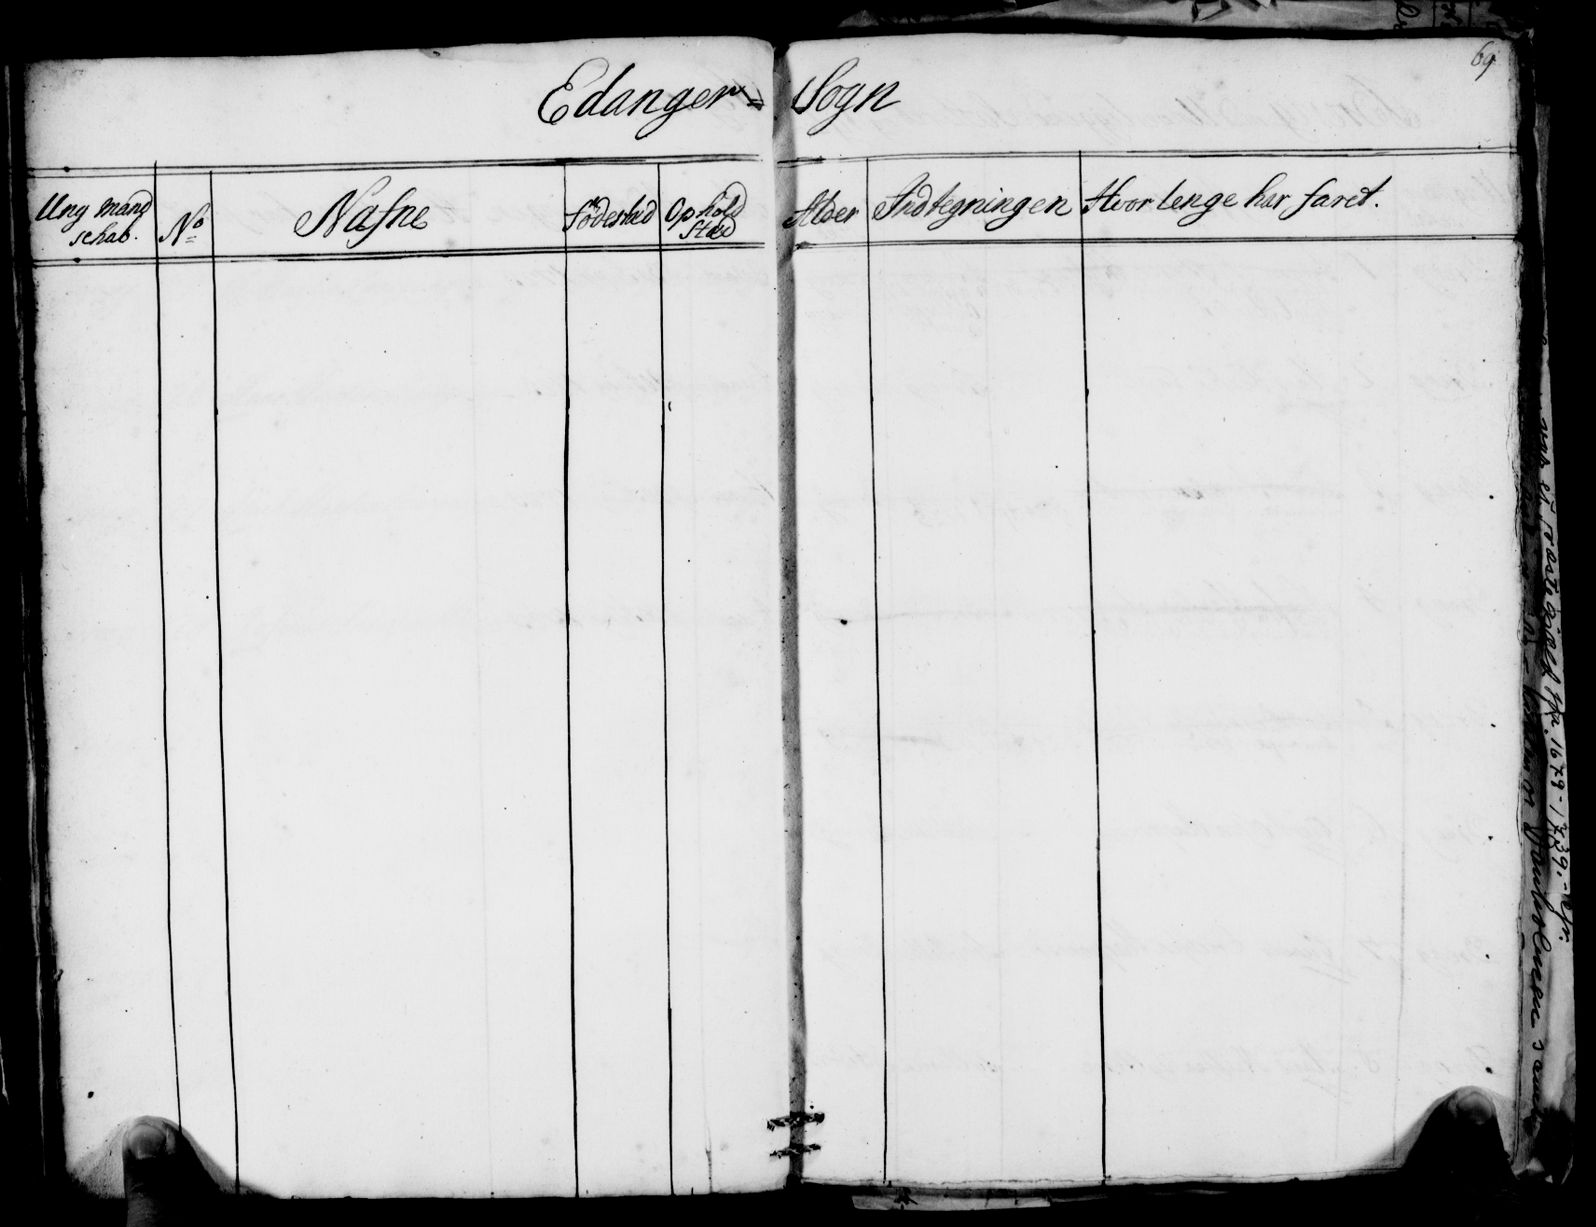 69
Edanger = Sogn
Ung Mand
schab.
No
Nafne
Födested
Ophold
Sted
Alder
Indtegningen
Hvor lenge har faret.
1679-1729.